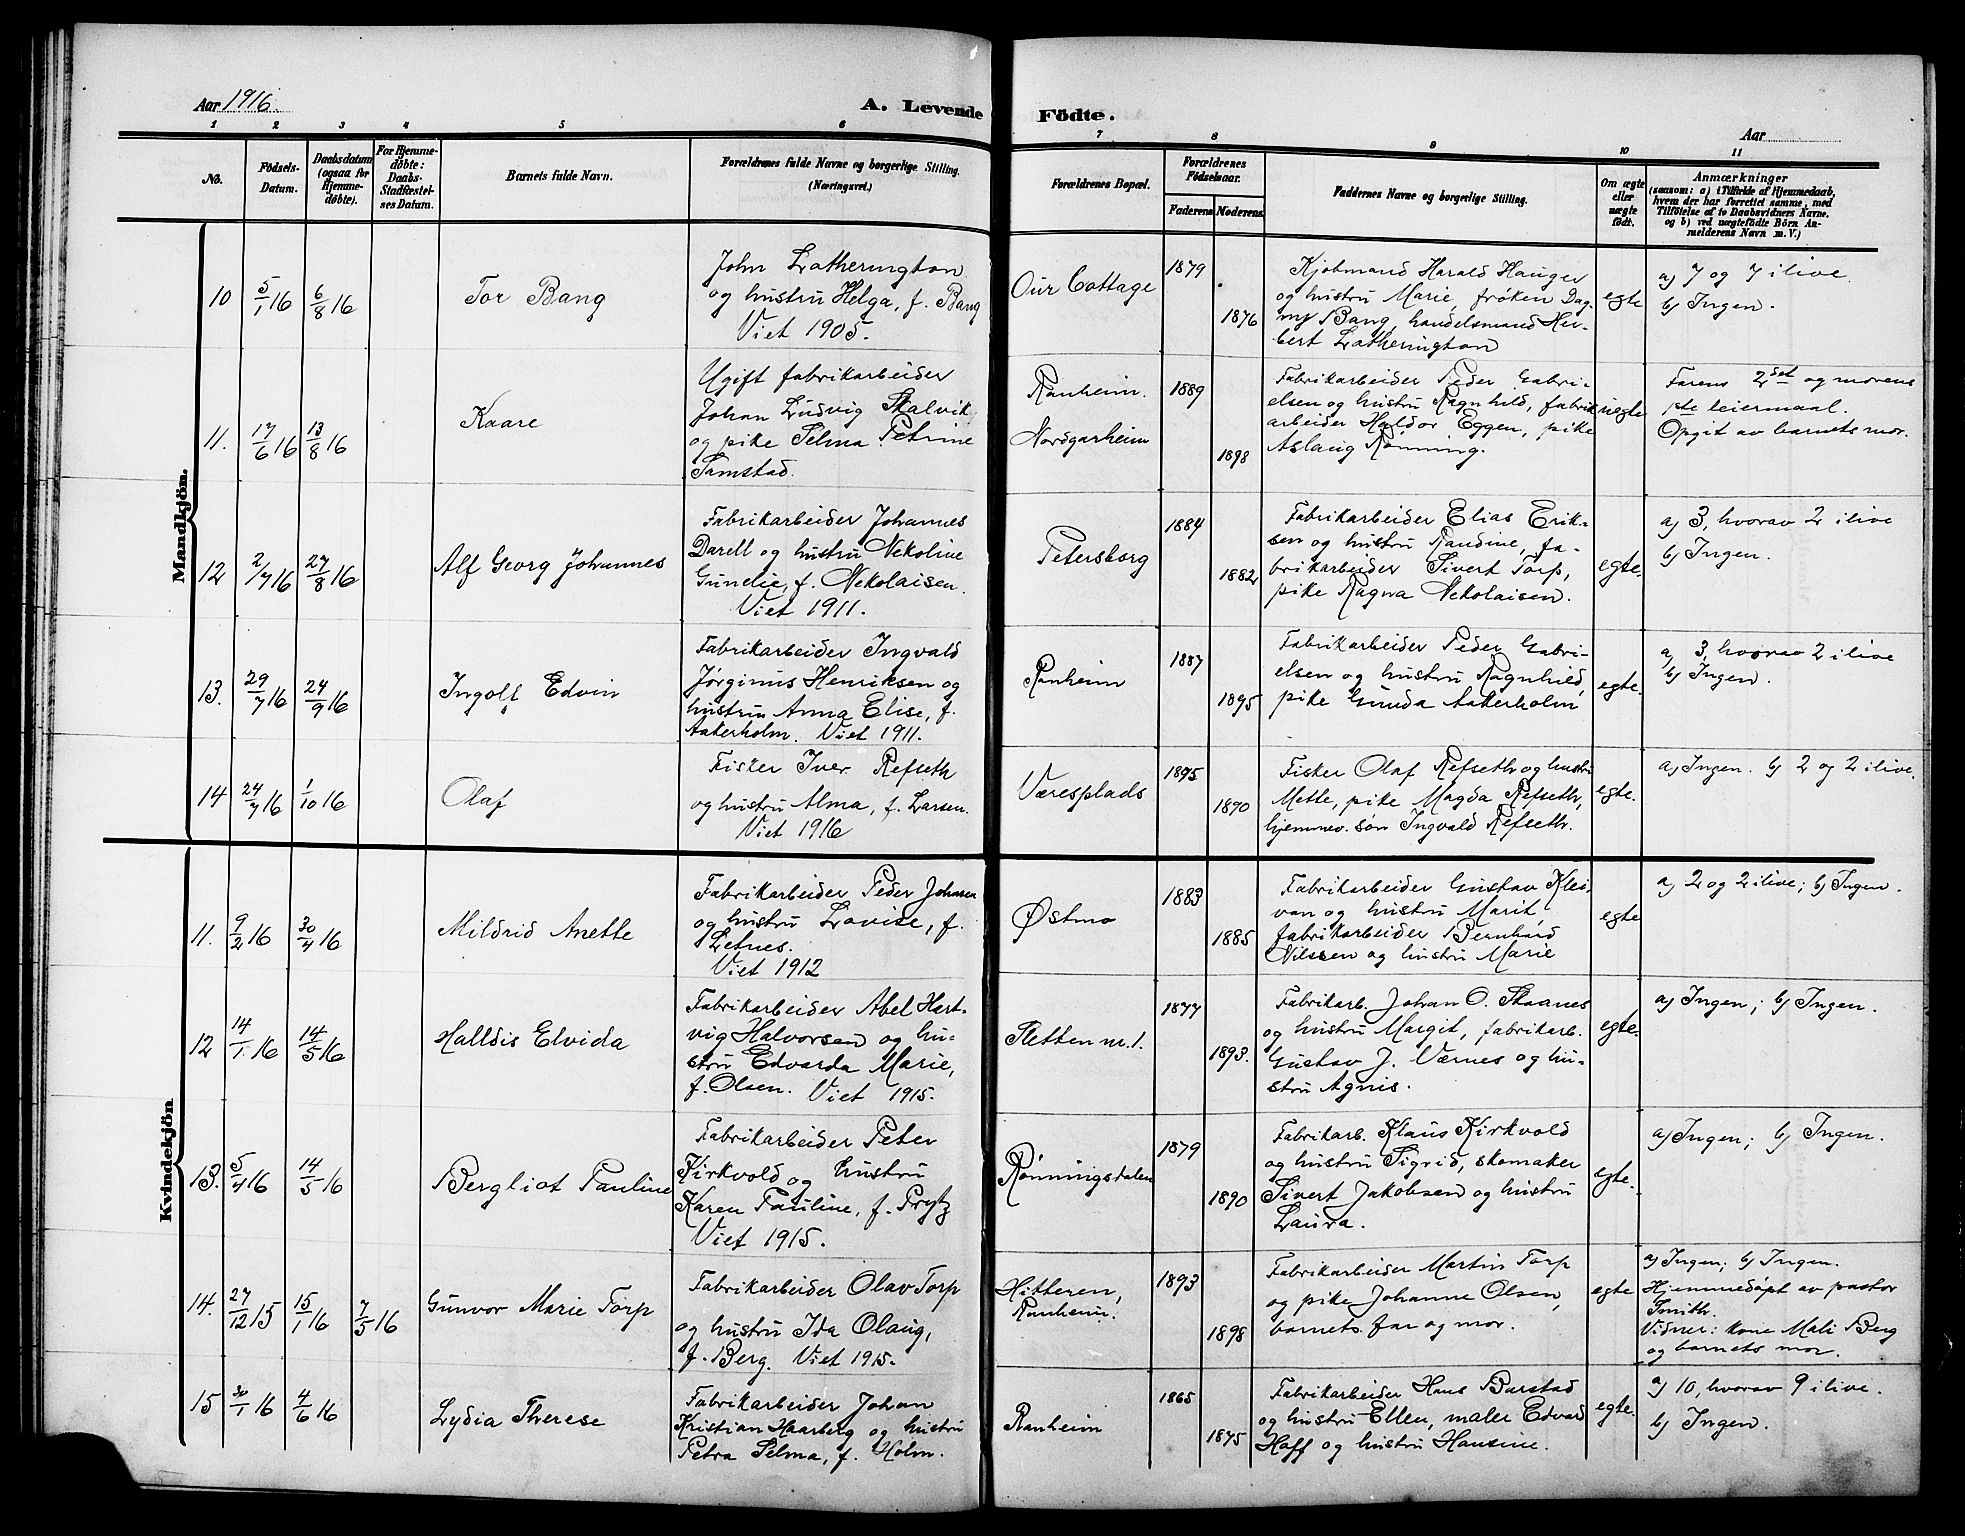 Aar 1916.
A. Levende Födte.
Aar
1 2 3 4 5 6 7 8 9 10 11
No.
Födsels-
Datum.
Daabsdatum
(ogsaa for
Hjemme-
døbte).
For Hjemme-
døbte:
Daabs-
Stadfæstel-
ses Datum.
Barnets fulde Navn.
Forældrenes fulde Navne og borgerlige Stilling.
(Næringsvei.)
Forældrenes Bopæl.
Forældrenes
Födselsaar.
Faderens Moderens
Faddernes Navne og borgerlige Stilling.
Om ægte
eller
uægte
födt.
Anmærkninger
(saasom: a) i Tilfælde af Hjemmedaab,
hvem der har forrettet samme, med
Tilföielse af to Daabsvidners Navne.
og b) ved uægtefödte Börn An-
melderens Navn m. V.)
Mandkjön.
10 5/1 16 6/8 16
Tor Bang
John Latherington
og hustru Helga, f. Bang
Viet 1905.
Our Cottage
1879
1876
Kjøbmand Harald Hauger
og hustru Marie, frøken Dag-
ny Bang, handelsmand Her-
bert Latherington
egte
a) 7 og 7 ilive.
b) Ingen.
11. 17/6 16 13/8 16
Kaare
Ugift fabrikarbeider
Johan Ludvig Skalvik
og pike Selma Petrine
Samstad.
Ranheim.
Nordgarheim
1889
1898
Fabrikarbeider Peder Gabri-
elsen og hustru Ragnhild, fabrik
arbeider Haldor Eggen, pike
Aslaug Rønning.
uegte
Farens 2det og morens
1ste leiermaal.
Opgit av barnets mor.
12 2/7 16 27/8 16
Alf Georg Johannes
Fabrikarbeider Johannes
Darell og hustru Nekoline
Gunelie, f. Nekolaisen.
Viet 1911.
Petersborg
1884
1882
Fabrikarbeider Elias Erik-
sen og hustru Randine, fa-
brikarbeider Sivert Torp,
pike Ragna Nekolaisen.
egte.
a) 3, hvorav 2 ilive
b) Ingen.
13. 29/7 16 24/9 16
Ingolf Edvin
Fabrikarbeider Ingvald
Jørginus Henriksen og
hustru Anna Elise, f.
Aakerholm. Viet 1911.
Ranheim
1887
1895
Fabrikarbeider Peder Gabri-
elsen og hustru Ragnhild,
pike Gunda Aakerholm
egte.
a) 3, hvorav 2 ilive
b) Ingen.
14 24/7 16 1/10 16
Olaf
Fisker Iver Refseth
og hustru Alma, f. Larsen.
Viet 1916
Væresplads
1895
1890
Fisker Olaf Refseth og hustru
Mette, pike Magda Refseth,
hjemmev. søn Ingvald Refseth.
egte.
a) Ingen. b) 2 og 2 ilive.
Kvindekjön
11. 9/2 16 30/4 16
Mildrid Anette
Fabrikarbeider Peder Johnsen
og hustru Lovise, f.
Letnes.
Viet 1912
Østmo
1883
1885
Fabrikarbeider Gustav Klei-
van og hustru Marit,
fabrikarbeider Bernhard
Nilssen og hustru Marie
egte
a) 2 og 2 ilive; b) Ingen.
12 14/1 16 14/5 16
Halldis Elvida
Fabrikarbeider Abel Hart-
vig Halvorsen og hu-
stru Edvarda Marie,
f. Olsen. Viet 1915.
Sletten nr. 1.
1877
1893.
Fabrikarb. Johan O. Skaanes
og hustru Margit, fabrikarb.
Gustav J. Værnes og hu-
stru Agnis.
egte.
a) Ingen; b) Ingen.
13. 5/4 16 14/5 16
Bergliot Pauline
Fabrikarbeider Peter
Kirkvold og hustru
Karen Pauline, f. Prytz
Viet 1915.
Rønningsdalen
1879
1890
Fabrikarb. Klaus Kirkvold
og hustru Sigrid, skomaker
Sivert Jakobsen og hustru
Laura.
egte.
a) Ingen; b) Ingen.
14. 27/12 15 15/1 16 7/5 16
Gunvor Marie Torp
Fabrikarbeider Olav Torp
og hustru Ida Olaug,
f. Berg. Viet 1915.
Hitteren,
Ranheim.
1893
1898
Fabrikarbeider Martin Torp
og pike Johanne Olsen,
barnets far og mor.
egte
a) Ingen; b) Ingen.
Hjemmedøpt av pastor
Smith.
Vidner: kone Mali Berg
og barnets mor.
15 30/1 16 4/6 16
Lydia Therese
Fabrikarbeider Johan
Kristian Haarberg og hustru
Petra Selma, f. Holm.
Ranheim
1865
1875
Fabrikarbeider Hans Burstad
og hustru Ellen, maler Edvard
Hoff og hustru Hansine.
egte.
a) 10, hvorav 9 ilive.
b) Ingen.